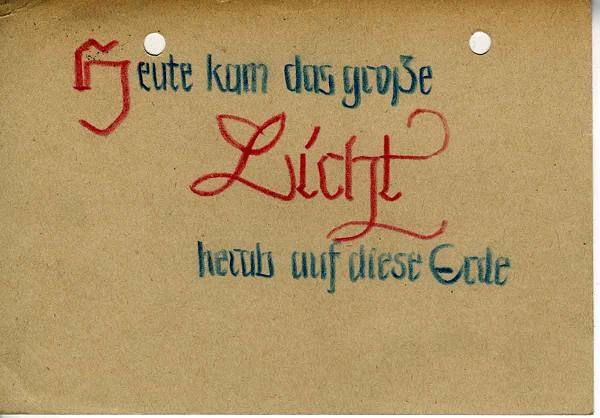 Heute kam das große
Licht
herab auf diese Erde